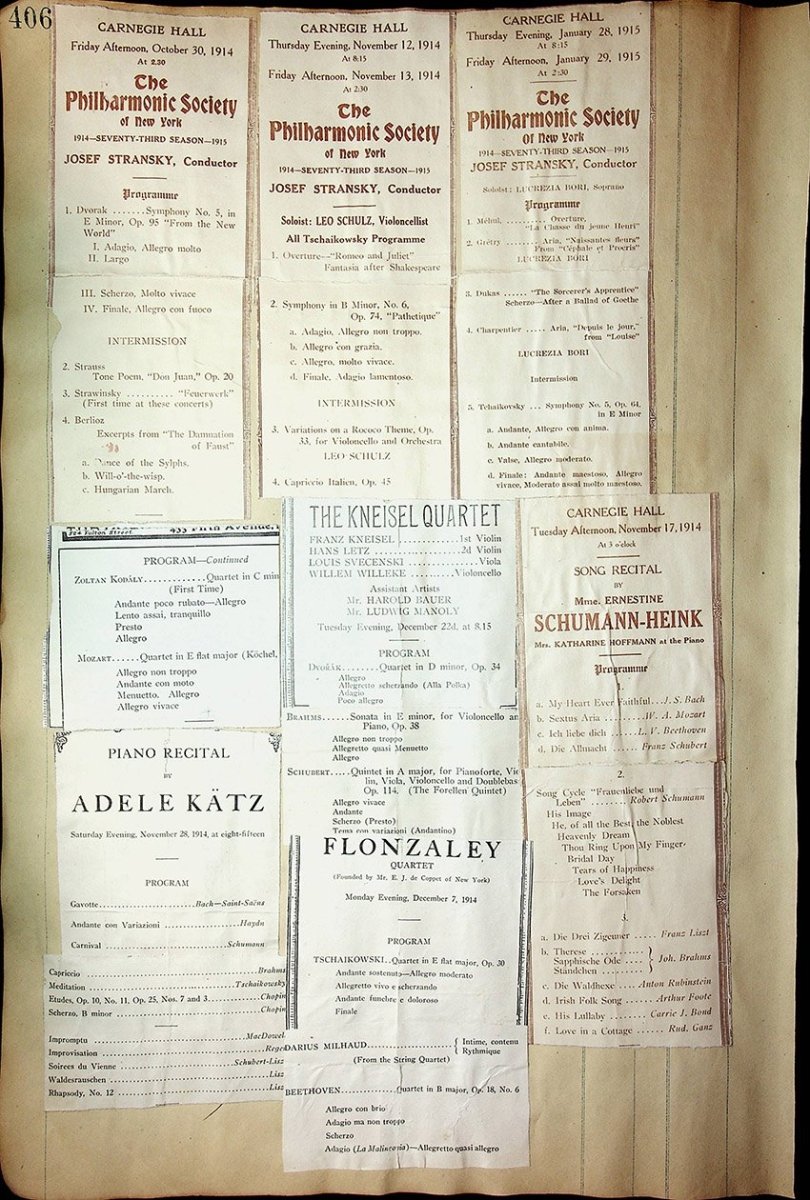 406
CARNEGIE HALL
Friday Afternoon, October 30, 1914
At 2.30
The
Philharmonic Society
of New York
1914—SEVENTY-THIRD SEASON—1915
JOSEF STRANSKY, Conductor
Programme
1. Dvorak .......Symphony No. 5, in
E Minor, Op. 95 "From the New
World"
I. Adagio, Allegro molto
II. Largo
III. Scherzo, Molto vivace
IV. Finale, Allegro con fuoco
INTERMISSION
2. Strauss
Tone Poem, "Don Juan," Op. 20
3. Strawinsky .......... "Feuerwerk"
(First time at these concerts)
4. Berlioz
Excerpts from "The Damnation
of Faust"
a. Dance of the Sylphs.
b. Will-o'-the-wisp.
c. Hungarian March.
CARNEGIE HALL
Thursday Evening, November 12, 1914
At 8:15
Friday Afternoon, November 13, 1914
At 2:30
The
Philharmonic Society
of New York
1914—SEVENTY-THIRD SEASON—1915
JOSEF STRANSKY, Conductor
Soloist: LEO SCHULZ, Violoncellist
All Tschaikowsky Programme
1. Overture—"Romeo and Juliet"
Fantasia after Shakespeare
2. Symphony in B Minor, No. 6,
Op. 74, "Pathetique"
a. Adagio, Allegro non troppo.
b. Allegro con grazia.
c. Allegro, molto vivace.
d. Finale, Adagio lamentoso.
INTERMISSION
3. Variations on a Rococo Theme, Op.
33, for Violoncello and Orchestra
LEO SCHULZ
4. Capriccio Italien, Op. 45
CARNEGIE HALL
Thursday Evening, January 28, 1915
At 8:15
Friday Afternoon, January 29, 1915
At 2:30
The
Philharmonic Society
Of New York
1914—SEVENTY-THIRD SEASON—1915
JOSEF STRANSKY, Conductor
Soloist: LUCREZIA BORI, Soprano
Programme
1. Méhul, .......... Overture,
"La Chasse du jeune Henri"
2. Grétry ...... Aria, "Naissantes fleurs"
From "Céphale et Procris"
LUCREZIA BORI
3. Dukas ...... "The Sorcerer's Apprentice"
Scherzo—After a Ballad of Goethe
4. Charpentier ..... Aria, "Depuis le jour,"
from "Louise"
LUCREZIA BORI
Intermission
5. Tchaikovsky ... Symphony No. 5, Op. 64,
in E Minor
a. Andante, Allegro con anima.
b. Andante cantabile.
c. Valse, Allegro moderato.
d. Finale: Andante maestoso, Allegro
vivace, Moderato assai molto maestoso.
Fulton Street 433 Fifth Avenue,
PROGRAM—Continued
ZOLTAN KODÁLY............Quartet in C min
(First Time)
Andante poco rubato—Allegro
Lento assai, tranquillo
Presto
Allegro
MOZART......Quartet in E flat major (Köchel,
Allegro non troppo
Andante con moto
Menuetto. Allegro
Allegro vivace
PIANO RECITAL
BY
ADELE KÄTZ
Saturday Evening, November 28, 1914, at eight-fifteen
PROGRAM
Gavotte......................Bach—Saint-Saëns
Andante con Variazioni ....................Haydn
Carnival ..........................Schumann
Capriccio ................................Brahms
Meditation ..........................Tschaikowsky
Etudes, Op. 10, No. 11, Op. 25, Nos. 7 and 3............Chopin
Scherzo, B minor ..........................Chopin
Impromptu ..........................MacDowel
Improvisation ..........................Rege
Soirees du Vienne ....................Schubert-Lisz
Waldesrauschen ..........................Lisz
Rhapsody, No. 12 ..........................Lisz
THE KNEISEL QUARTET
FRANZ KNEISEL ................1st Violin
HANS LETZ ....................2d Violin
LOUIS SVECENSKI ................Viola
WILLEM WILLEKE ..........Violoncello
Assistant Artists
Mr. HAROLD BAUER
Mr. LUDWIG MANOLY
Tuesday Evening, December 22d, at 8.15
PROGRAM
DVOŘÁK........Quartet in D minor, Op. 34
Allegro
Allegretto scherzando (Alla Polka)
Adagio
Poco allegro
BRAHMS......Sonata in E minor, for Violoncello an
Piano, Op. 38
Allegro non troppo
Allegretto quasi Menuetto
Allegro
SCHUBERT.....Quintet in A major, for Pianoforte, Vio
lin, Viola, Violoncello and Doublebas
Op. 114. (The Forellen Quintet)
Allegro vivace
Andante
Scherzo (Presto)
Tema con variazioni (Andantino)
FLONZALEY
QUARTET
(Founded by Mr. E. J. de Coppet of New York)
Monday Evening, December 7, 1914
PROGRAM
TSCHAIKOWSKI..Quartet in E flat major, Op. 30
Andante sostenuto—Allegro moderato
Allegretto vivo e scherzando
Andante funebre e doloroso
Finale
DARIUS MILHAUD.................... { Intime, contenu
Rythmique
(From the String Quartet)
BEETHOVEN............Quartet in B major, Op. 18, No. 6
Allegro con brio
Adagio ma non troppo
Scherzo
Adagio (La Malinconia)—Allegretto quasi allegro
CARNEGIE HALL
Tuesday Afternoon, November 17, 1914
At 3 o'clock
SONG RECITAL
BY
Mme. ERNESTINE
SCHUMANN-HEINK
Mrs. KATHARINE HOFFMANN at the Piano
Programme
1.
a. My Heart Ever Faithful...J. S. Bach
b. Sextus Aria .........W. A. Mozart
c. Ich liebe dich .....L. V. Beethoven
d. Die Allmacht .....Franz Schubert
2.
Song Cycle "Frauenliebe und
Leben" ........ Robert Schumann
His Image
He, of all the Best, the Noblest
Heavenly Dream
Thou Ring Upon My Finger
Bridal Day
Tears of Happiness
Love's Delight
The Forsaken
3.
a. Die Drei Zigeuner ..... Franz Liszt
b. Therese ............
Sapphische Ode .... } Joh. Brahms
Ständchen .........
c. Die Waldhexe ...Anton Rubinstein
d. Irish Folk Song ......Arthur Foote
e. His Lullaby ......Carrie J. Bond
f. Love in a Cottage ...... Rud. Ganz